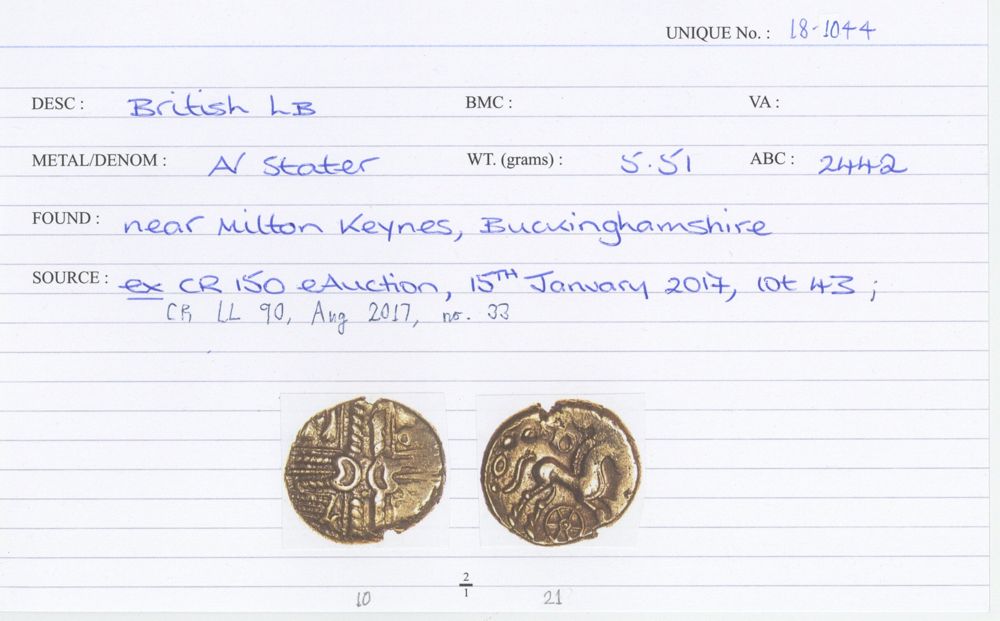 UNIQUE No. : 18-1044
DESC : British LB BMC : VA :
METAL/DENOM : A/ Stater WT. (grams) : 5.51 ABC : 2442
FOUND : near Milton Keynes, Buckinghamshire
SOURCE : ex CR 150 eAuction, 15TH January 2017, lot 43 ;
CR LL 90, Aug 2017, no. 33
2
1
10 21